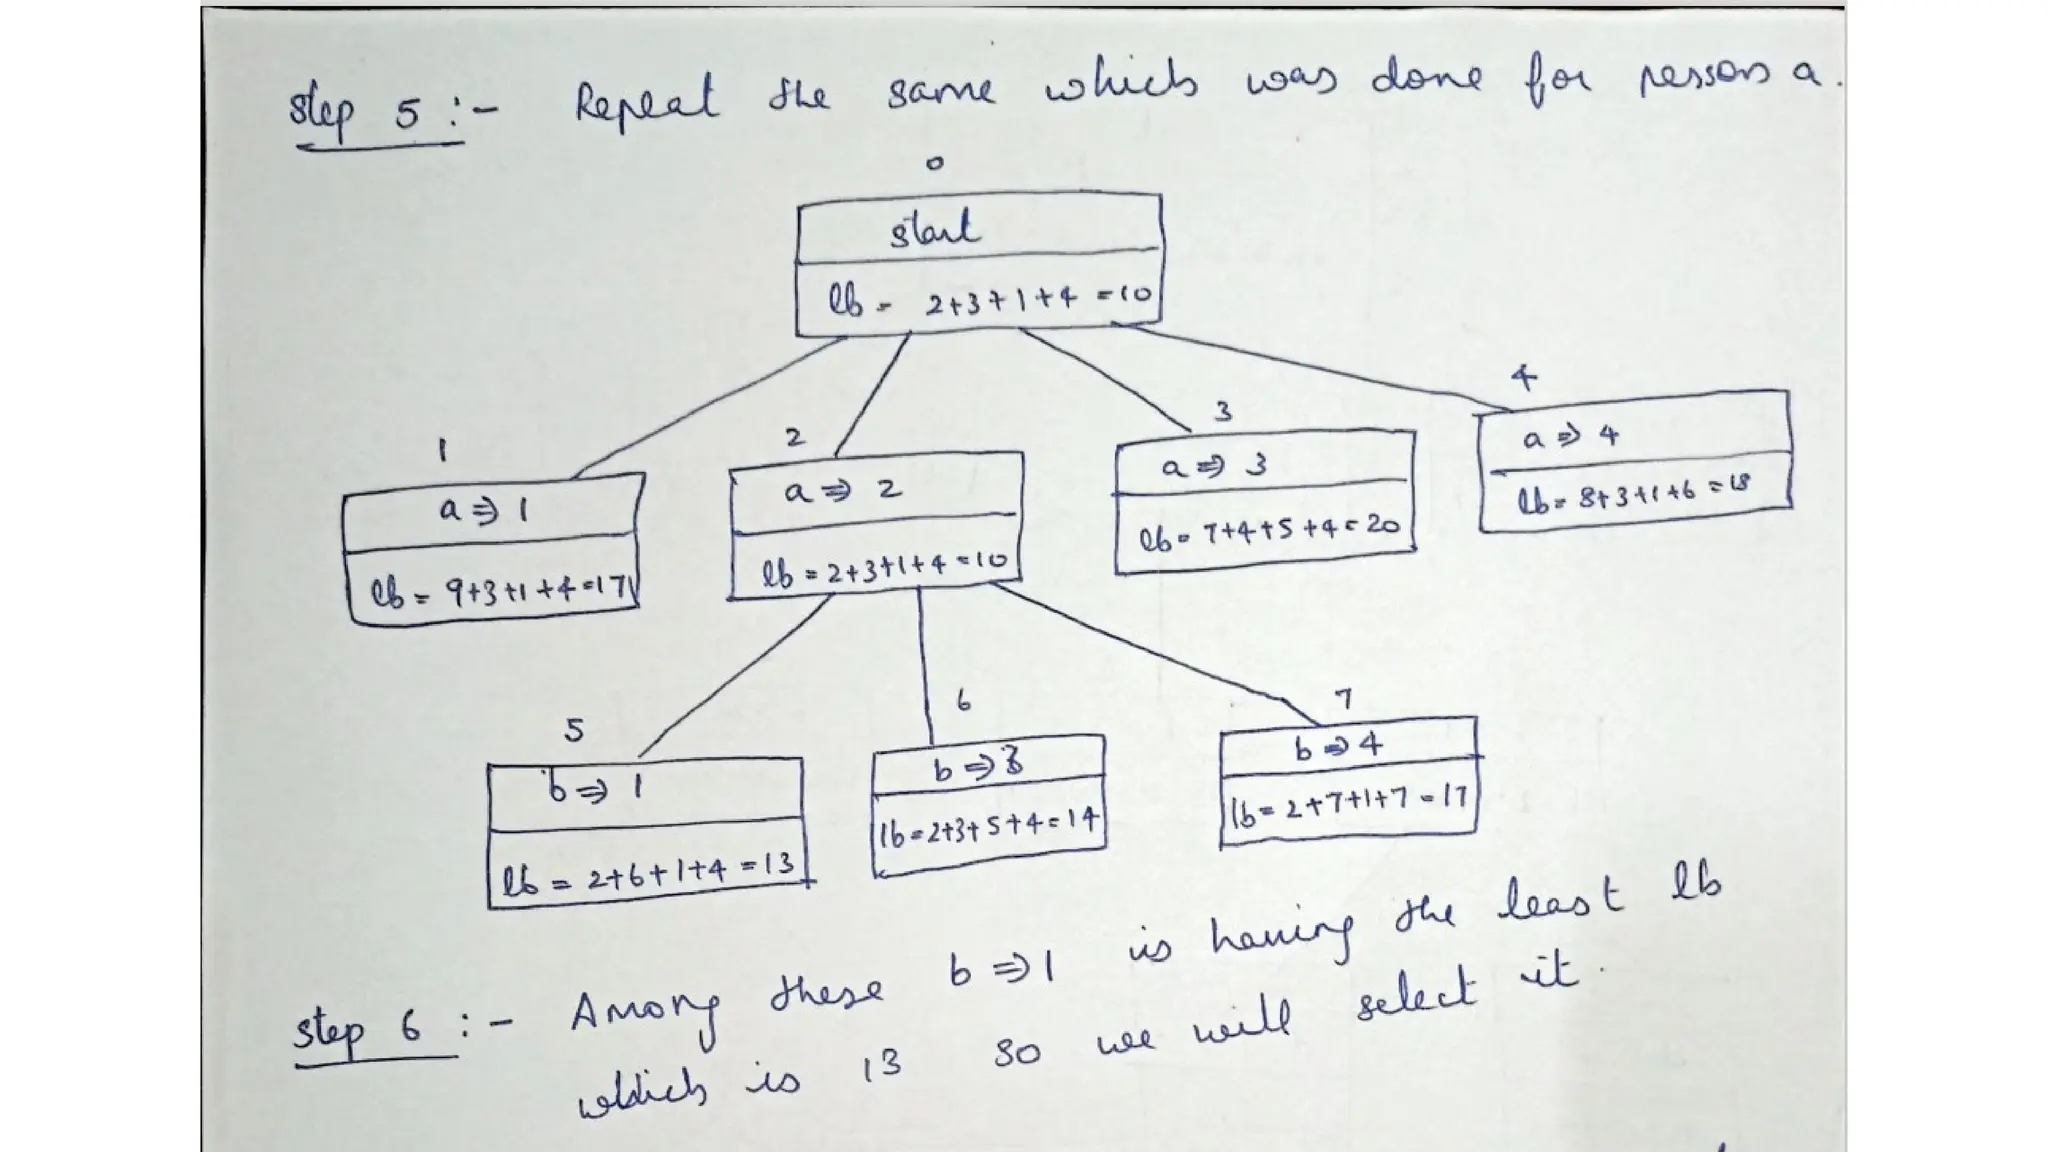 step 5 :- Repeat the same which was done for person a.
0
start
lb = 2+3+1+4 = 10
1
a ⇒ 1
lb = 9+3+1+4=17
2
a ⇒ 2
lb = 2+3+1+4 = 10
3
a ⇒ 3
lb = 7+4+5+4 = 20
4
a ⇒ 4
lb = 8+3+1+6 = 18
5
b ⇒ 1
lb = 2+6+1+4 = 13
6
b ⇒ 3
lb = 2+3+5+4 = 14
7
b ⇒ 4
lb = 2+7+1+7 = 17
step 6 :- Among these b ⇒ 1 is having the least lb
which is 13 so we will select it.